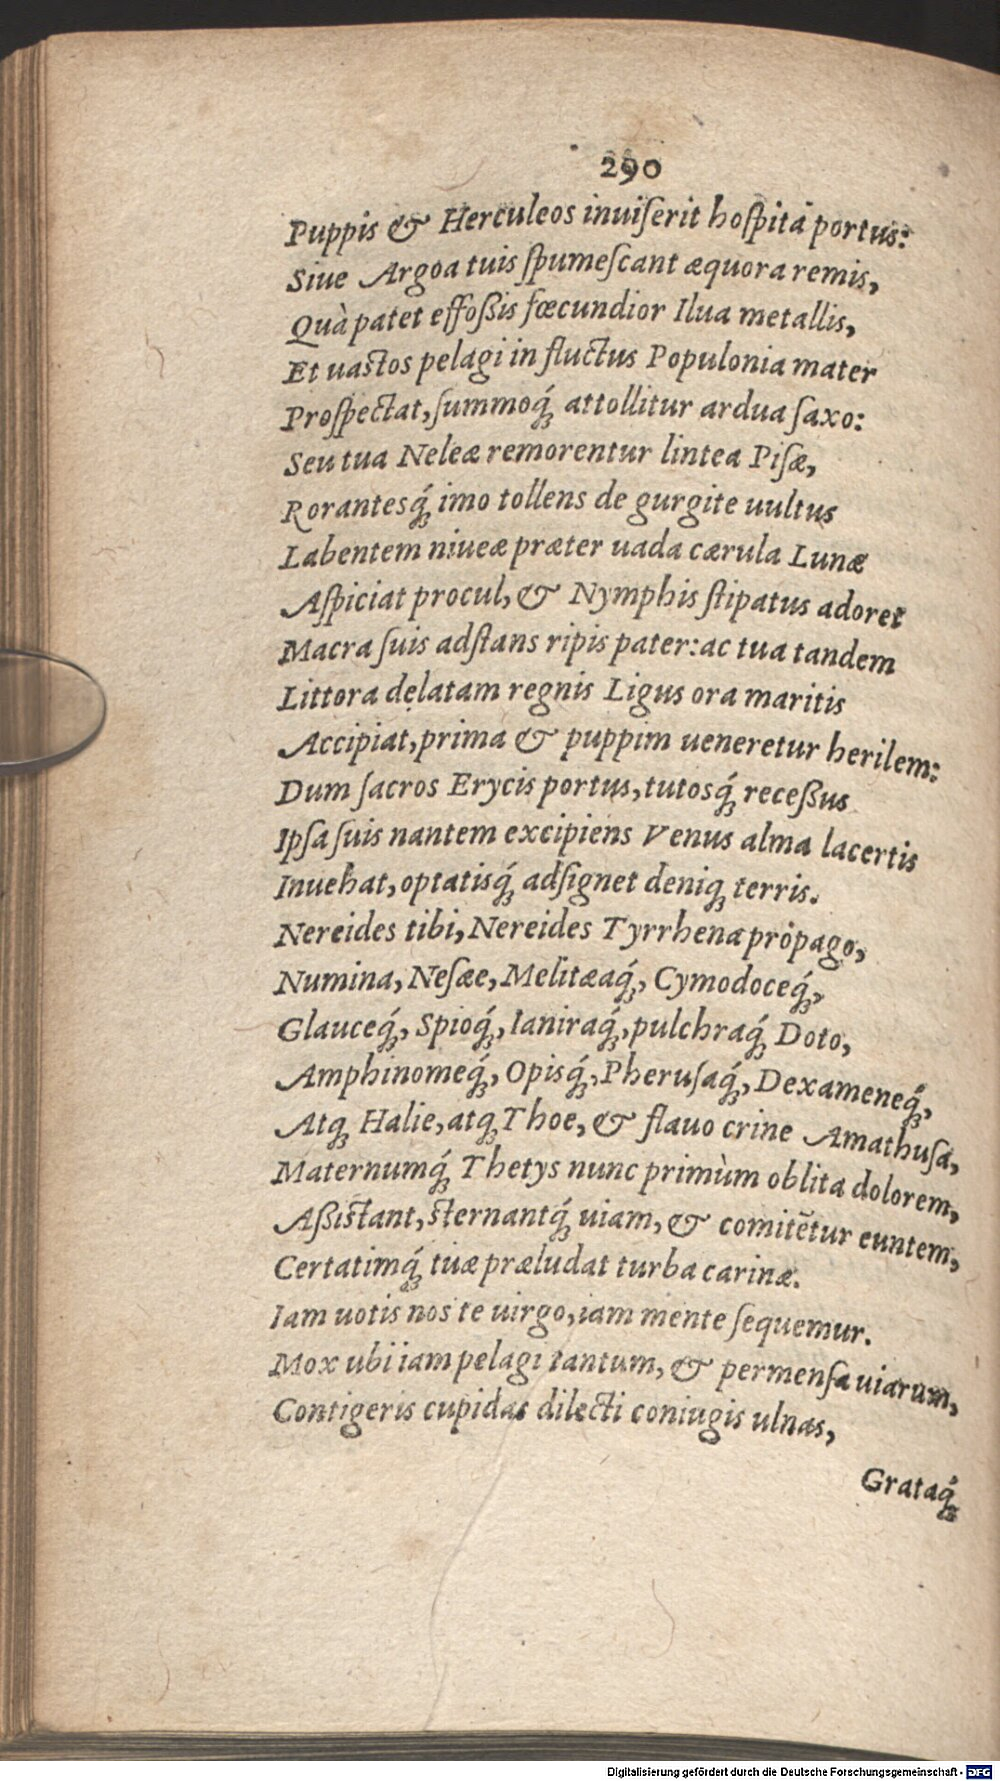 290
Puppis & Herculeos inuiſerit hoſpita portus:
Siue Argoa tuis ſpumeſcant æquora remis,
Quà patet effoßis fœcundior Ilua metallis,
Et uastos pelagi in fluctus Populonia mater
Proſpectat, ſummoq́; attollitur ardua ſaxo:
Seu tua Neleæ remorentur lintea Piſæ,
Rorantesq́; imo tollens de gurgite uultus
Labentem niueæ præter uada cærula Lunæ
Aſpiciat procul, & Nymphis ſtipatus adoret
Macra ſuis adſtans ripis pater: ac tua tandem
Littora delatam regnis Ligus ora maritis
Accipiat, prima & puppim ueneretur herilem:
Dum ſacros Erycis portus, tutosq́; receßus
Ipſa ſuis nantem excipiens Venus alma lacertis
Inuehat, optatisq́; adſignet deniq; terris.
Nereides tibi, Nereides Tyrrhena propago,
Numina, Neſæe, Melitæaq́;, Cymodoceq́;,
Glauceq́;, Spioq́;, Ianiraq́;, pulchraq́; Doto,
Amphinomeq́;, Opisq́;, Pheruſaq́;, Dexameneq́;,
Atq; Halie, atq; Thoe, & flauo crine Amathuſa,
Maternumq́; Thetys nunc primùm oblita dolorem,
Aßistant, sternantq́; uiam, & comitẽtur euntem,
Certatimq́; tuæ præludat turba carinæ.
Iam uotis nos te uirgo, iam mente ſequemur.
Mox ubi iam pelagi tantum, & permenſa uiarum,
Contigeris cupidas dilecti coniugis ulnas,
Grataq́;
Digitalisierung gefördert durch die Deutsche Forschungsgemeinschaft - DFG